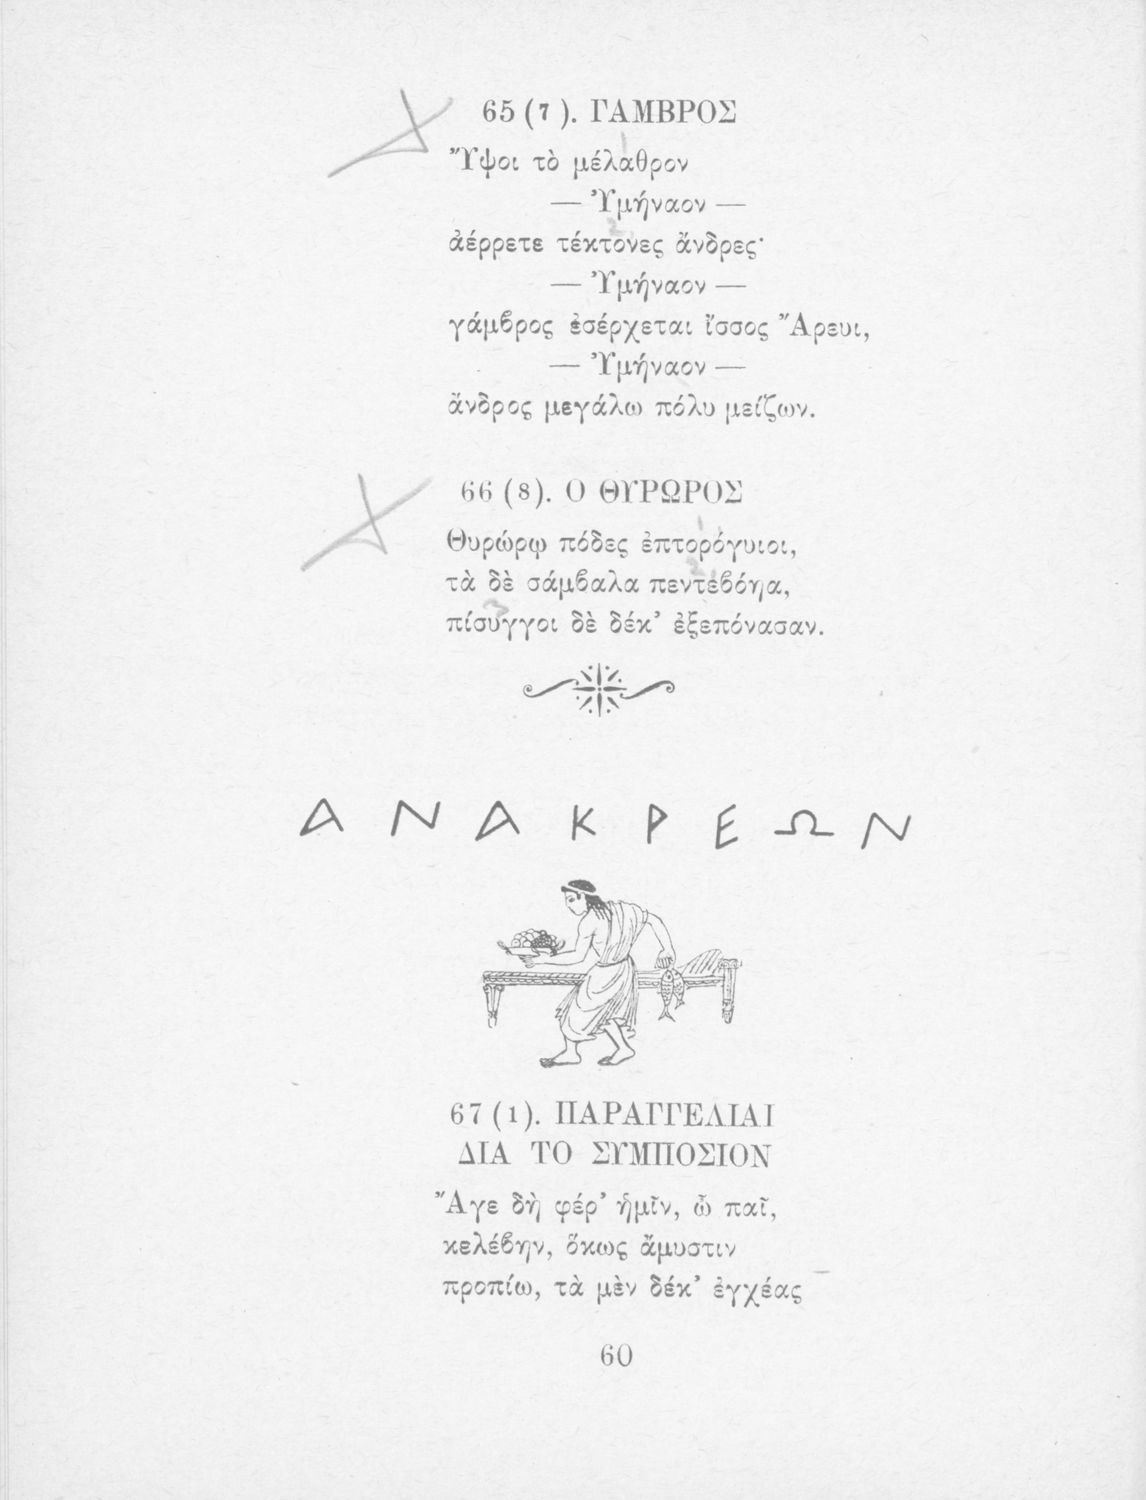 65 (7). ΓΑΜΒΡΟΣ
Ὕψοι τὸ μέλαθρον
— Ὑμήναον —
ἀέρρετε τέκτονες ἄνδρες·
— Ὑμήναον —
γάμβρος ἐσέρχεται ἴσσος Ἄρευι,
— Ὑμήναον —
ἄνδρος μεγάλω πόλυ μείζων.
66 (8). Ο ΘΥΡΩΡΟΣ
Θυρώρῳ πόδες ἐπτορόγυιοι,
τὰ δὲ σάμβαλα πεντεβόηα,
πίσυγγοι δὲ δέκ’ ἐξεπόνασαν.
ΑΝΑΚΡΕΩΝ
67 (1). ΠΑΡΑΓΓΕΛΙΑΙ
ΔΙΑ ΤΟ ΣΥΜΠΟΣΙΟΝ
Ἄγε δὴ φέρ’ ἡμῖν, ὦ παῖ,
κελέβην, ὅκως ἄμυστιν
προπίω, τὰ μὲν δέκ’ ἐγχέας
60